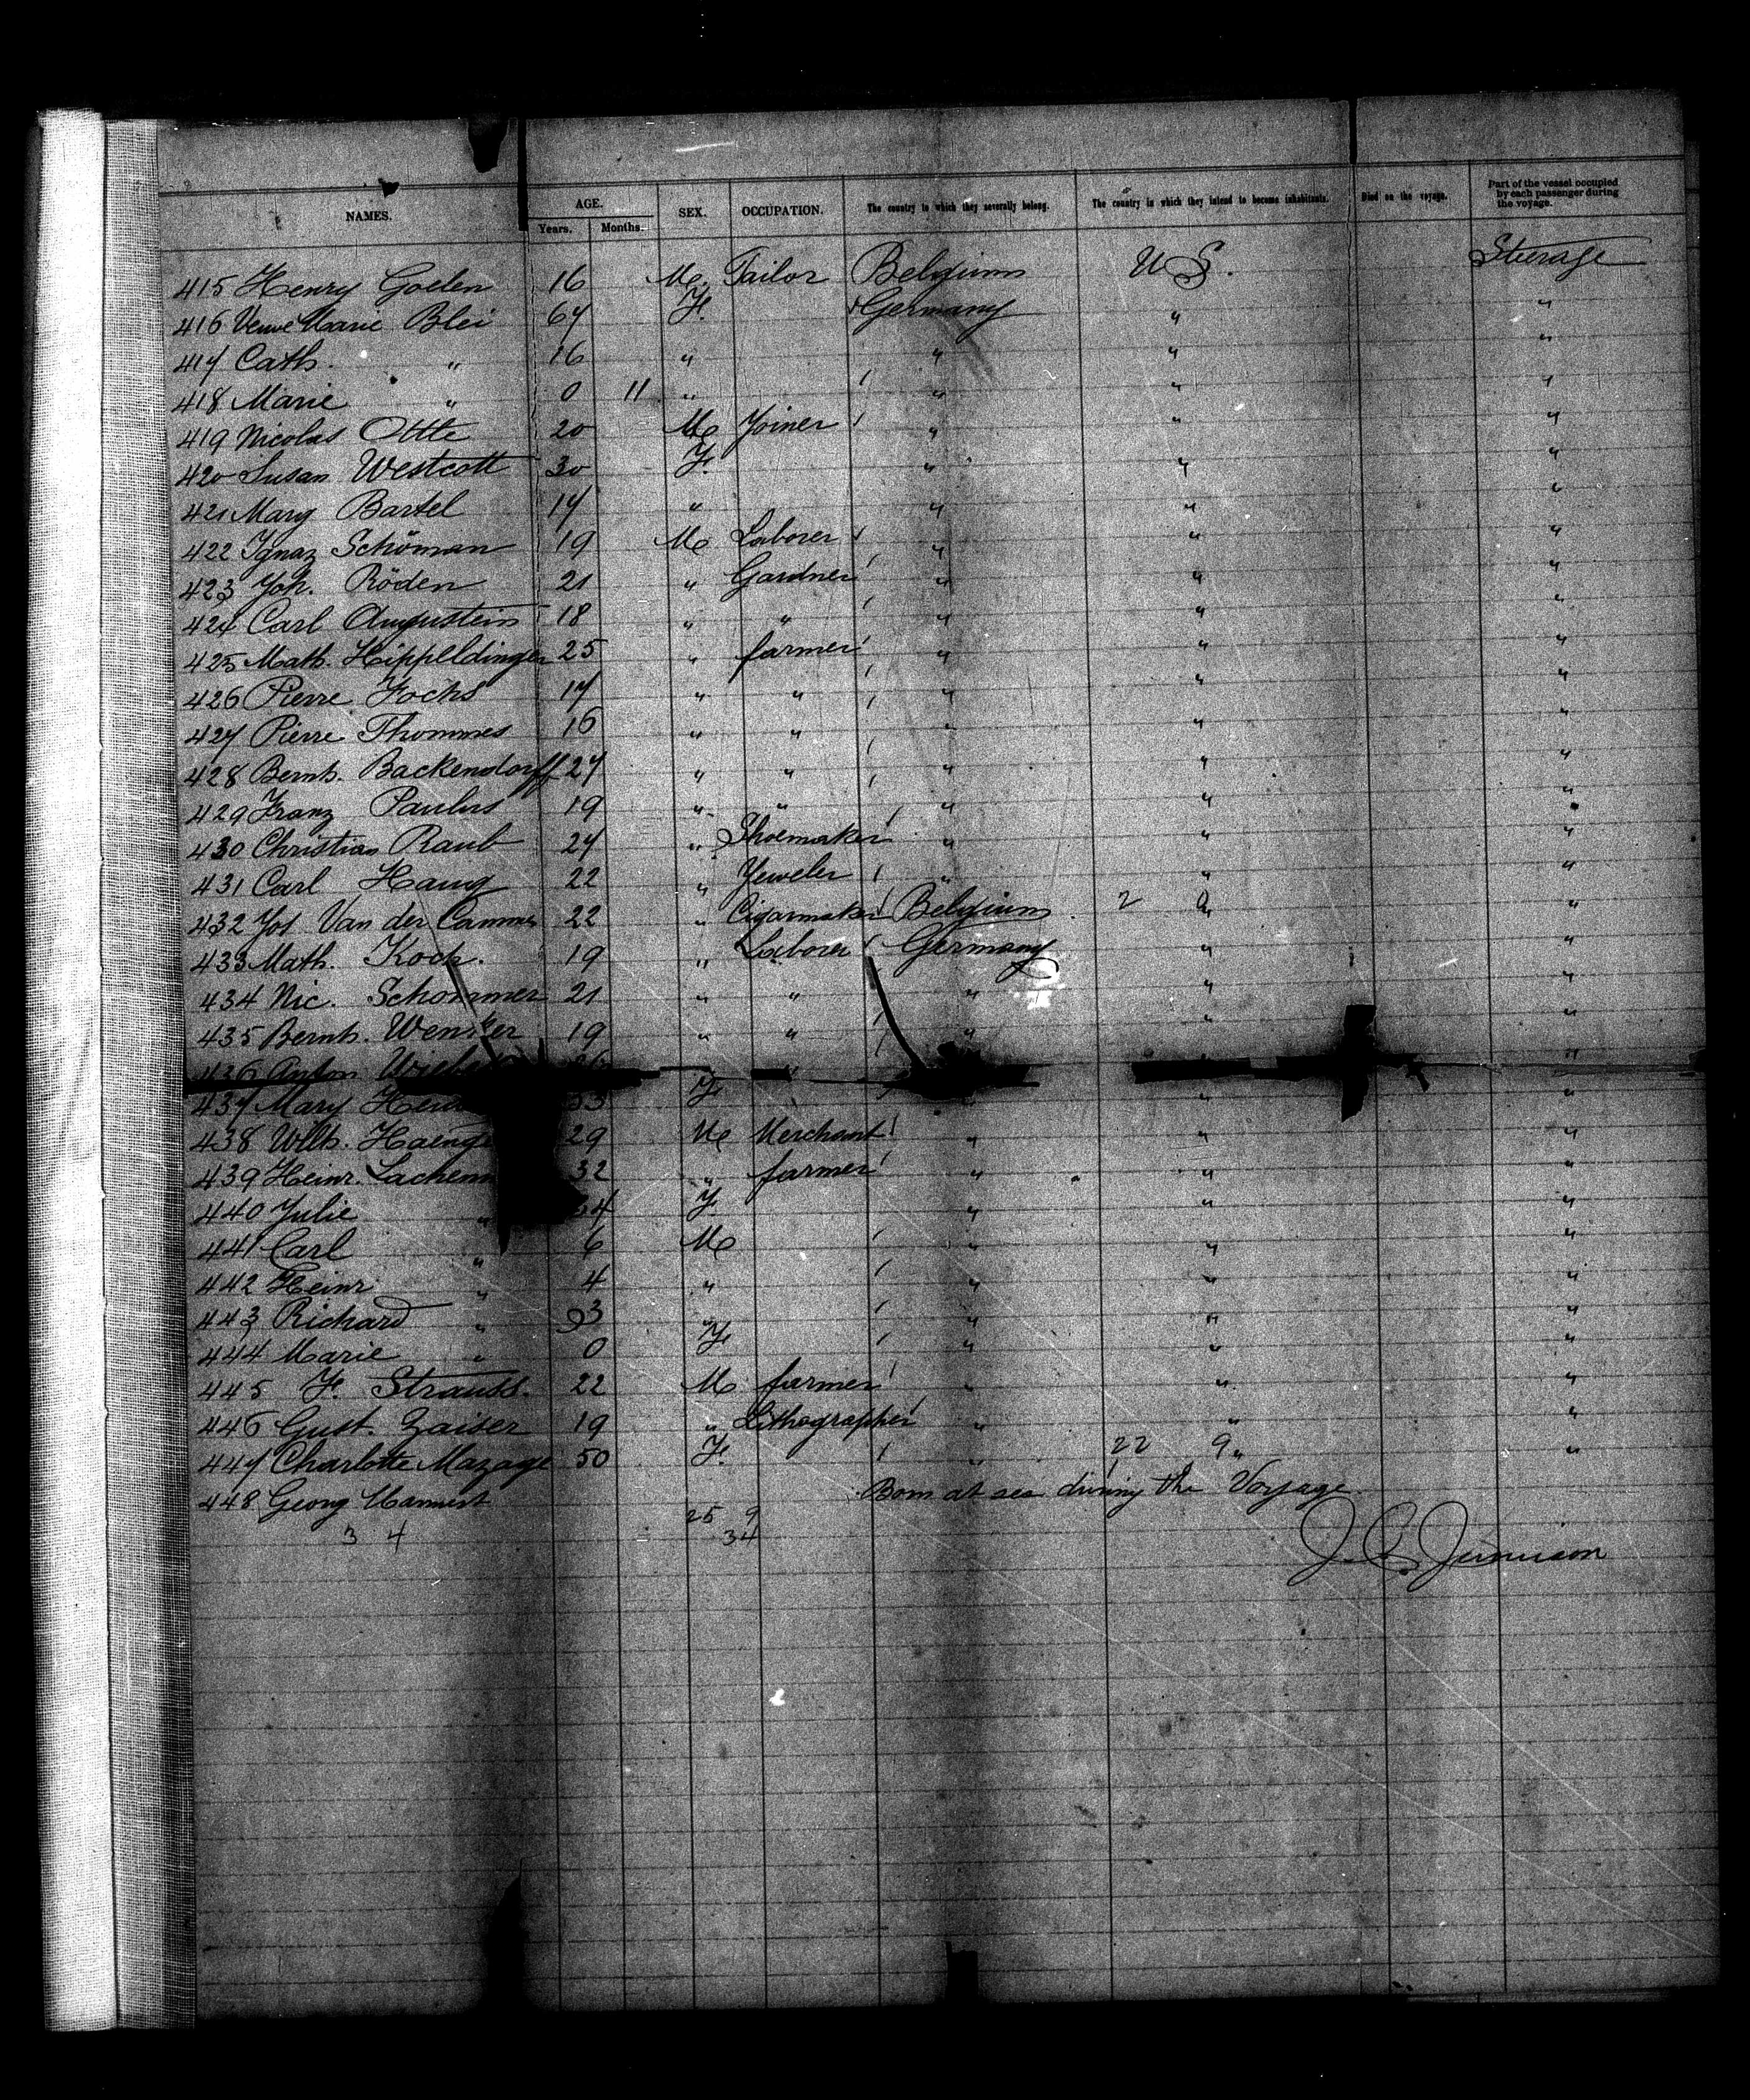 NAMES. AGE. SEX. OCCUPATION. The country to which they severally belong. The country in which they intend to become inhabitants. Died on the voyage. Part of the vessel occupied by each passenger during the voyage.
Years. Months.
415 Henry Goelen 16 M. Tailor Belgium U S. Steerage
416 Veuve Marie Blei 67 F. Germany " "
417 Cath. " 16 " " " "
418 Marie " 0 11 " " " "
419 Nicolas Otte 20 M Joiner " " "
420 Susan Westcott 30 F. " " "
421 Mary Bartel 17 " " " "
422 Ignaz Schöman 19 M Laborer " " "
423 Joh. Röden 21 " Gardner " " "
424 Carl Augustein 18 " " " " "
425 Math. Hippeldinger 25 " farmer " " "
426 Pierre Fochs 17 " " " " "
427 Pierre Thommes 16 " " " " "
428 Bernh. Backendorff 27 " " " " "
429 Franz Paulus 19 " " " " "
430 Christian Raub 27 " Shoemaker " " "
431 Carl Haug 22 " Jeweler " " "
432 Jos Van der Camme 22 " Cigarmaker Belgium 2 "
433 Math. Koch. 19 " Laborer Germany " "
434 Nic. Schommer 21 " " " " "
435 Bernh. Wenker 19 " " " " "
436 Anton " "
437 Mary F " "
438 Wilh. 29 M Merchant " " "
439 Heinr. 32 " farmer " " "
440 Julie " F. " " "
441 Carl " 6 M " " "
442 Heinr " 4 " " " "
443 Richard " 3 " " " "
444 Marie " 0 F " " "
445 F. Strauss. 22 M farmer " " "
446 Gust. Zaiser 19 " Lithographer " " "
447 Charlotte Mazage 50 F. " 22 9 " "
448 Georg Born at sea during the Voyage
3 4 25 9
34